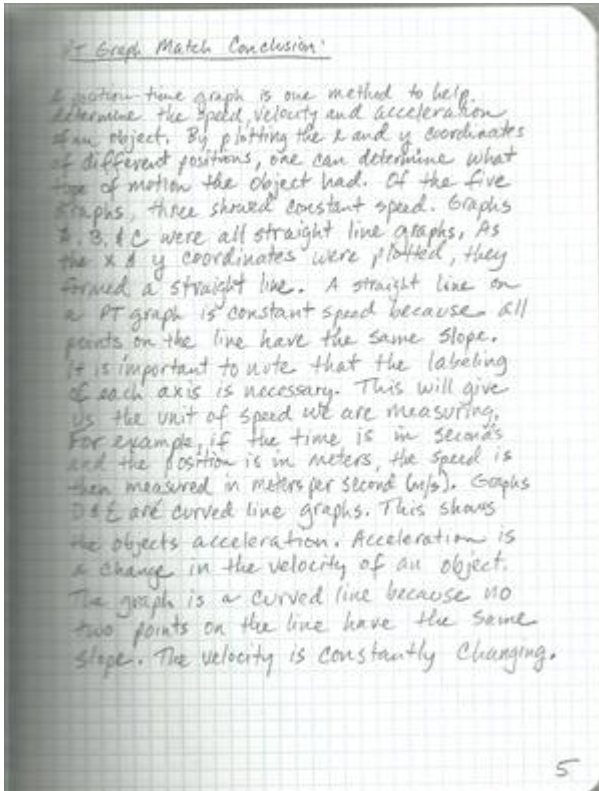 PT Graph Match Conclusion:
A motion-time graph is one method to help
determine the speed, velocity and acceleration
of an object. By plotting the x and y coordinates
of different positions, one can determine what
type of motion the object had. Of the five
graphs, three showed constant speed. Graphs
A, B, & C were all straight line graphs. As
the x & y coordinates were plotted, they
formed a straight line. A straight line on
a PT graph is constant speed because all
points on the line have the same slope.
It is important to note that the labeling
of each axis is necessary. This will give
us the unit of speed we are measuring.
For example, if the time is in seconds
and the position is in meters, the speed is
then measured in meters per second (m/s). Graphs
D & E are curved line graphs. This shows
the objects acceleration. Acceleration is
a change in the velocity of an object.
The graph is a curved line because no
two points on the line have the same
slope. The velocity is constantly changing.
5